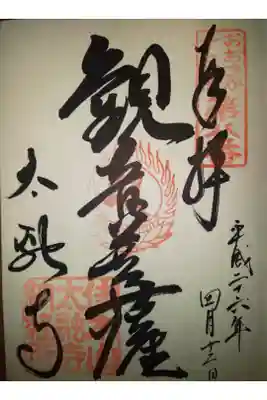 奉拝
平成二十六年
四月十三日
観音菩薩
太龍寺